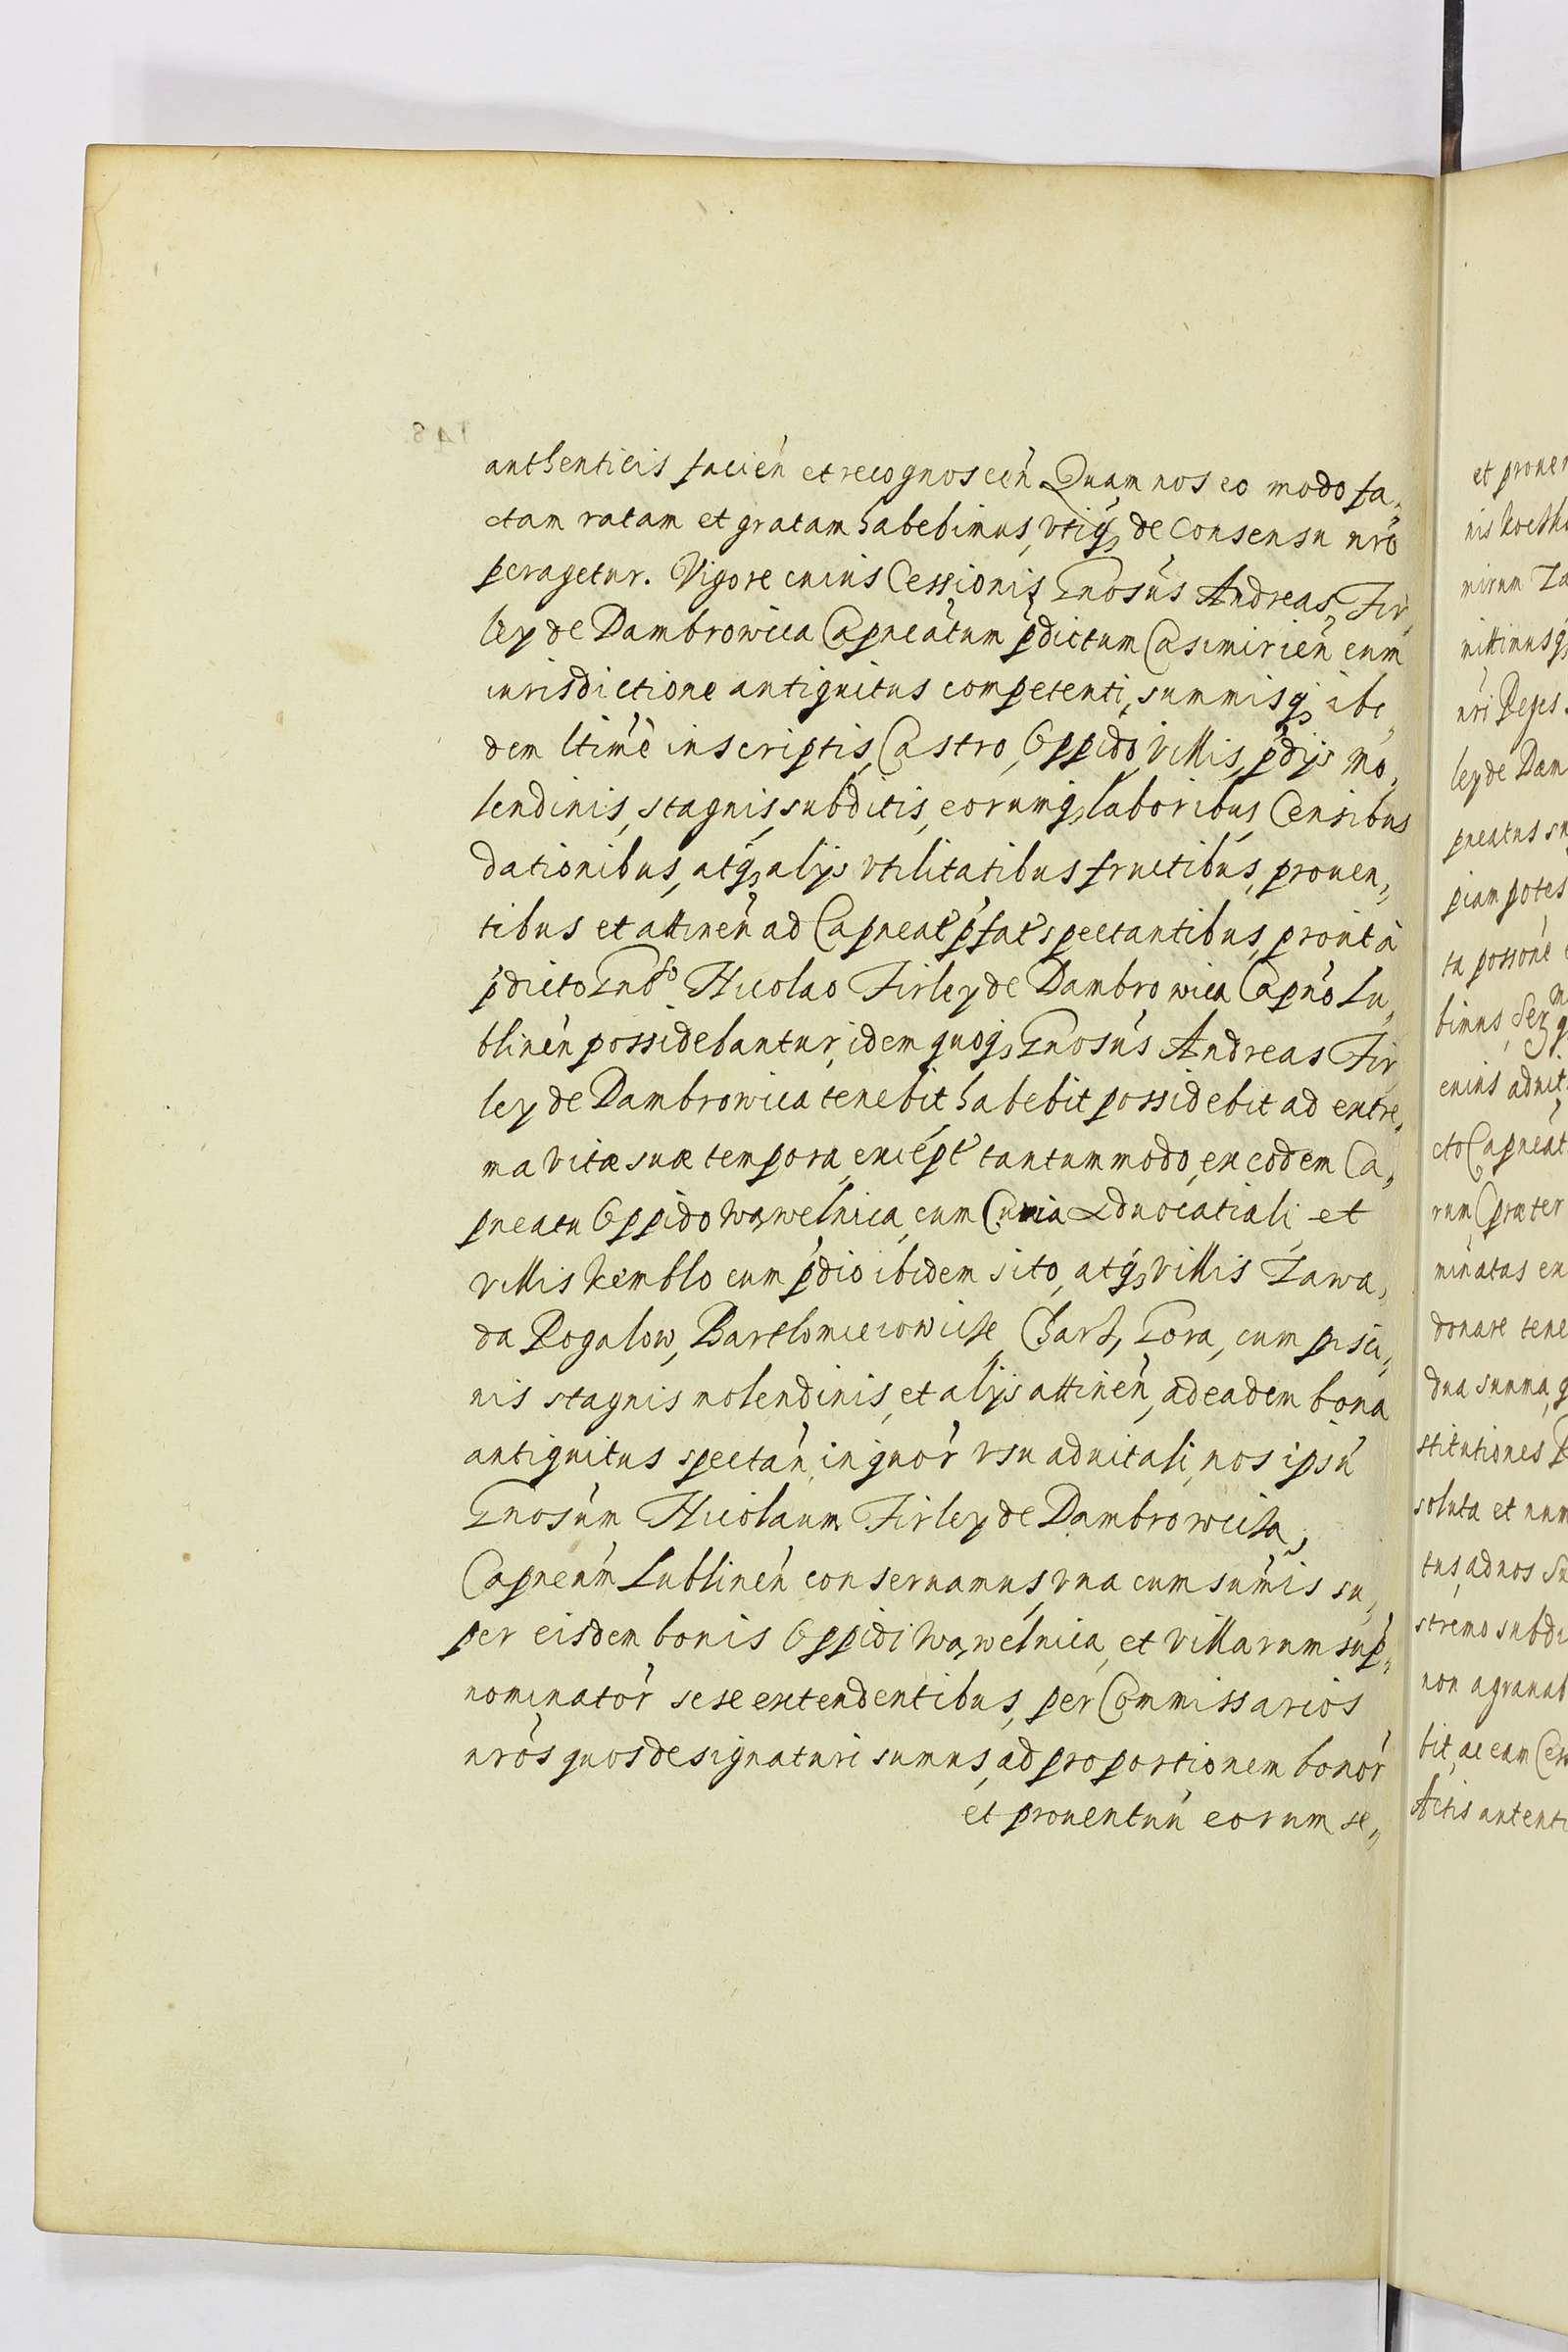 authenticis facien̄ et recognoscen̄ Quam nos eo modo fa,
ctam ratam et gratam habebimus, vtiq3 de consensu nrō
peragetur. Vigore cuius Cessionis Gnosūs Andreas Fir,
ley de Dambrowica Capneātum p̄dictum Casimirien̄ cum
iurisdictione antiquitus competenti, summisq3 ibi,
dem ltimē inscriptis, Castro, Oppido, villis, p̄dijs mo,
lendinis, stagnis, subditis, eorumq3 laboribus, Censibus
dationibus, atq3 alijs vtilitatibus fructibus, prouen,
tibus et attinen̄ ad Capneat̄ p̄fat̄ spectantibus, prout à
p̄dicto Gnoso Nicolao Firley de Dambrowica Capnō Lu,
blinen̄ possidebantur, idem quoq3 Gnosūs Andreas Fir,
ley de Dambrowica tenebit habebit possidebit ad extre,
ma vitæ suæ tempora, except̄ tantummodo, ex eodem Ca,
pneatu Oppido Wąwelnica, cum Curia Aduocatiali, et
villis Kemblo cum p̄dio ibidem sito, atq3 villis Zawa,
da Rogalow, Bartlomieiowice, Charz, Gora, cum pisci,
nis stagnis molendinis, et alijs attinen̄, ad eadem bona
antiquitus spectan̄, in quor̄ vsu aduitali, nos ipsū
Gnosūm Nicolaum Firley de Dambrowicza,
Capneūm Lublinen̄ conseruamus, vna cum sumīs su,
per eisdem bonis Oppidi Wąwelnica, et villarum sup̄,
nominator̄ sese extendentibus, per Commissarios
nrōs quos designaturi sumus, ad proportionem bonor̄
et prouentuū eorum se,
148
et prouen
mirum Za
mittimusq3
nrī Reges
ley de Dam
pneatus su
piam potes
ta possōne
binus,
cuius aduit
cto Capneat
rum Præter
minatas ex
donare tene
dua summa, q
stitutiones R
soluta et num
tus, ad nos Su
stremo subdi
non agrauab
bit, ac eam Cess
Actis autenti